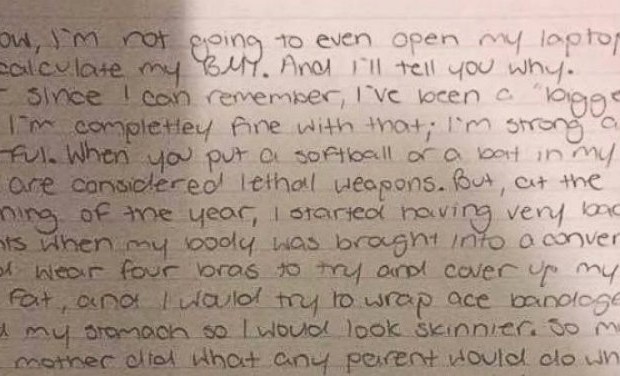 ow, I'm not going to even open my laptop
calculate my BMI. And I'll tell you why.
since I can remember, I've been a "bigge
I'm completley fine with that; I'm strong a
ful. When you put a softball or a bat in my
are considered lethal weapons. But, at the
ning of the year, I started having very bad
ts when my body was braght into a conver
d wear four bras to try and cover up my
fat, and I would try to wrap ace bandage
d my stomach so I woud look skinnier. So m
mother did what any parent would do wh